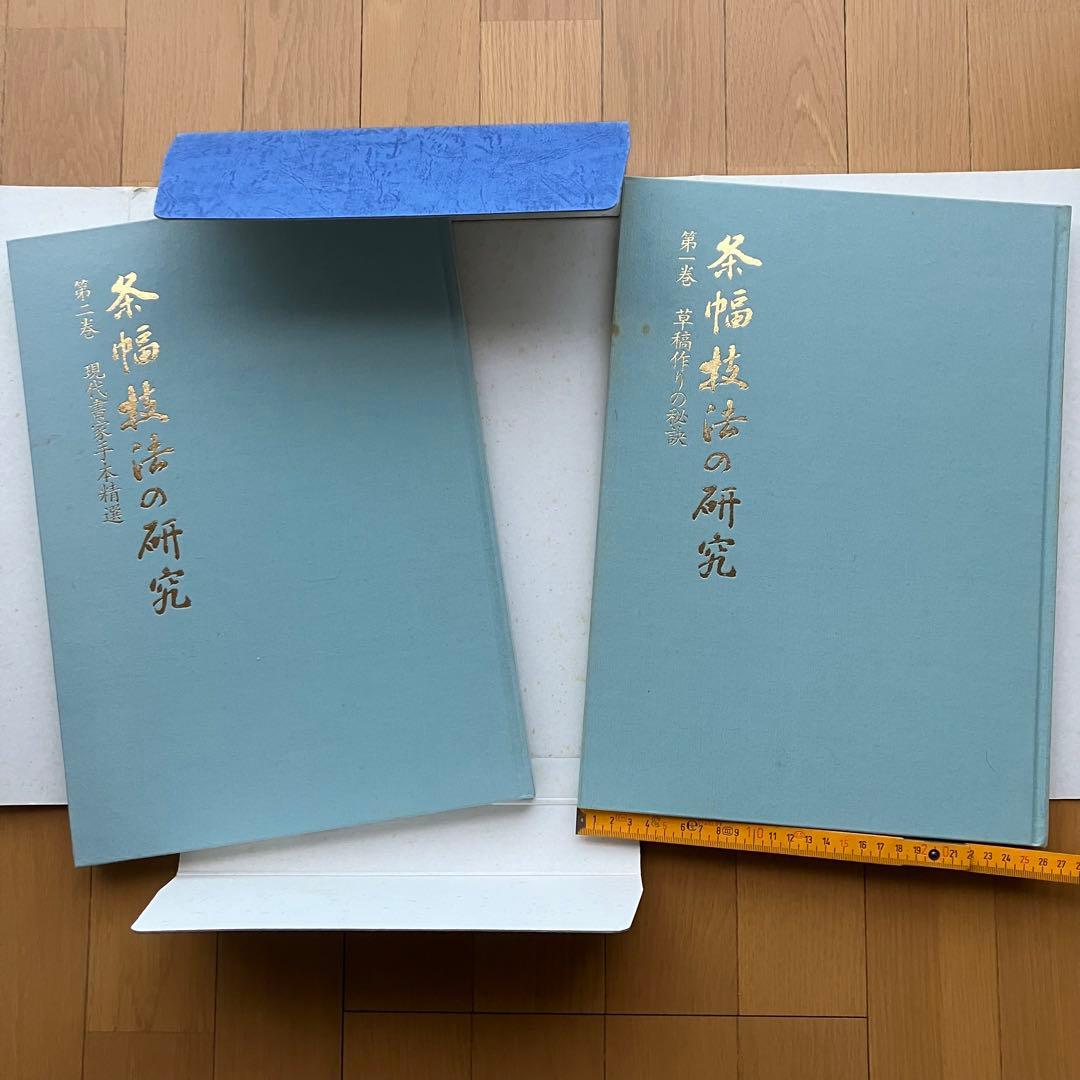 条幅技法の研究
第一巻 草稿作りの秘訣
条幅技法の研究
第二巻 現代書家手本精選
1 2 3 4 5 6 7 8 9 10 11 12 13 14 15 16 17 18 19 20 21 2 23 24 25 26 27 2